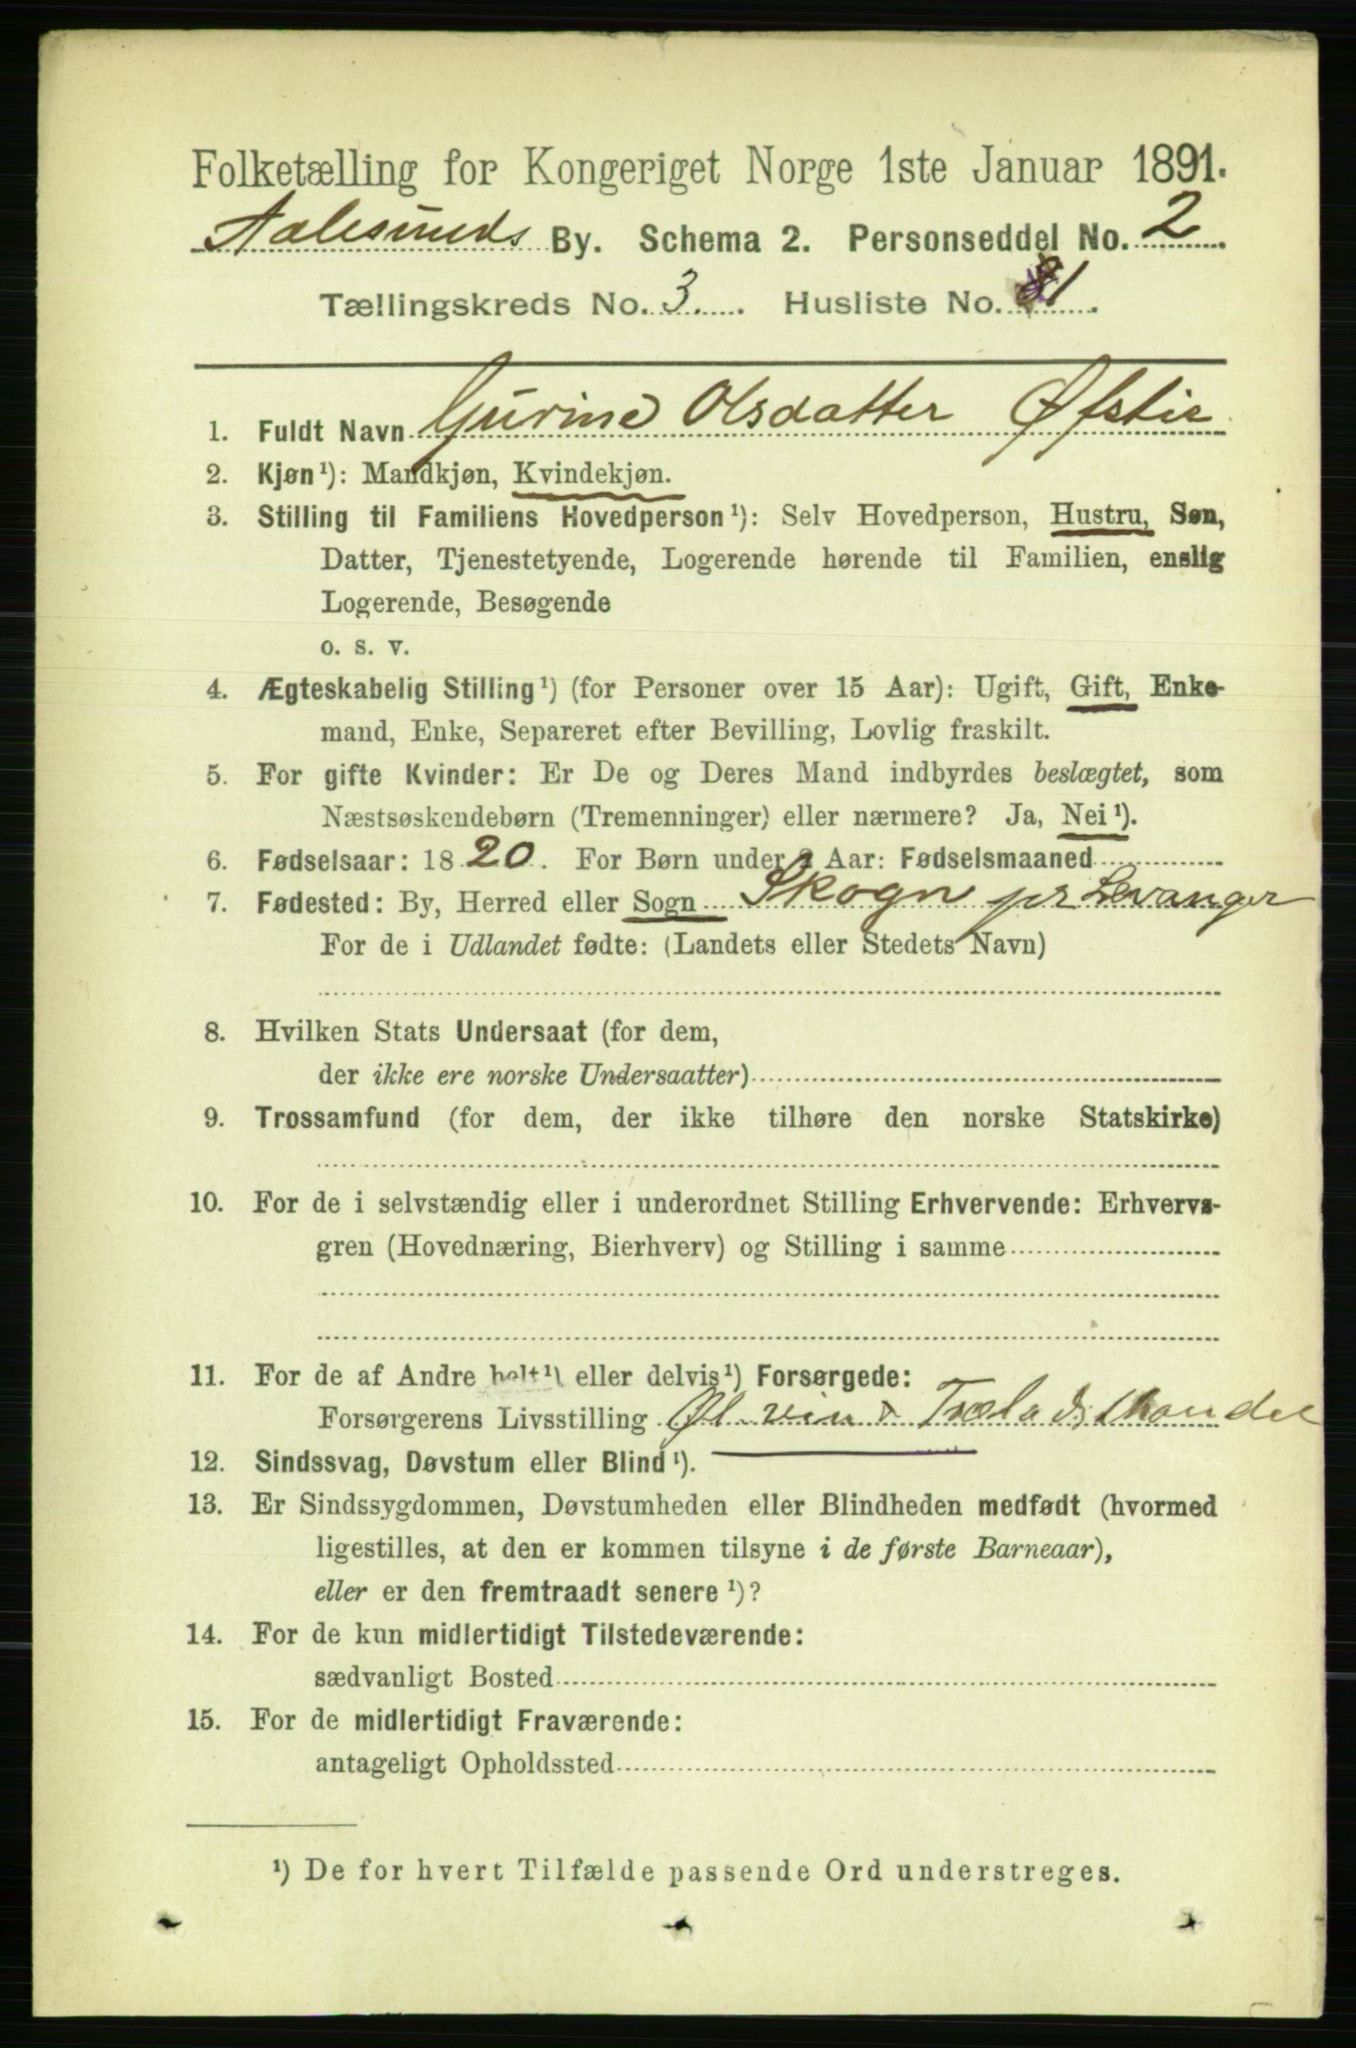 Folketælling for Kongeriget Norge 1ste Januar 1891.
Aalesunds By. Schema 2. Personseddel No. 2
Tællingskreds No. 3. Husliste No. 81.
1. Fuldt Navn Gurine Olsdatter Øfstie
2. Kjøn ¹): Mandkjøn, Kvindekjøn.
3. Stilling til Familiens Hovedperson ¹): Selv Hovedperson, Hustru, Søn,
Datter, Tjenestetyende, Logerende hørende til Familien, enslig
Logerende, Besøgende
o. s. v.
4. Ægteskabelig Stilling ¹) (for Personer over 15 Aar): Ugift, Gift, Enke-
mand, Enke, Separeret efter Bevilling, Lovlig fraskilt.
5. For gifte Kvinder: Er De og Deres Mand indbyrdes beslægtet, som
Næstsøskendebørn (Tremenninger) eller nærmere? Ja, Nei ¹).
6. Fødselsaar: 1820. For Børn under 2 Aar: Fødselsmaaned
7. Fødested: By, Herred eller Sogn Skogn pr Levanger
For de i Udlandet fødte: (Landets eller Stedets Navn)
8. Hvilken Stats Undersaat (for dem,
der ikke ere norske Undersaatter)
9. Trossamfund (for dem, der ikke tilhøre den norske Statskirke)
10. For de i selvstændig eller i underordnet Stilling Erhvervende: Erhvervs-
gren (Hovednæring, Bierhverv) og Stilling i samme
11. For de af Andre helt ¹) eller delvis ¹) Forsørgede:
Forsørgerens Livsstilling Øl- vin &
12. Sindssvag, Døvstum eller Blind ¹).
13. Er Sindssygdommen, Døvstumheden eller Blindheden medfødt (hvormed
ligestilles, at den er kommen tilsyne i de første Barneaar),
eller er den fremtraadt senere ¹)?
14. For de kun midlertidigt Tilstedeværende:
sædvanligt Bosted
15. For de midlertidigt Fraværende:
antageligt Opholdssted
¹) De for hvert Tilfælde passende Ord understreges.